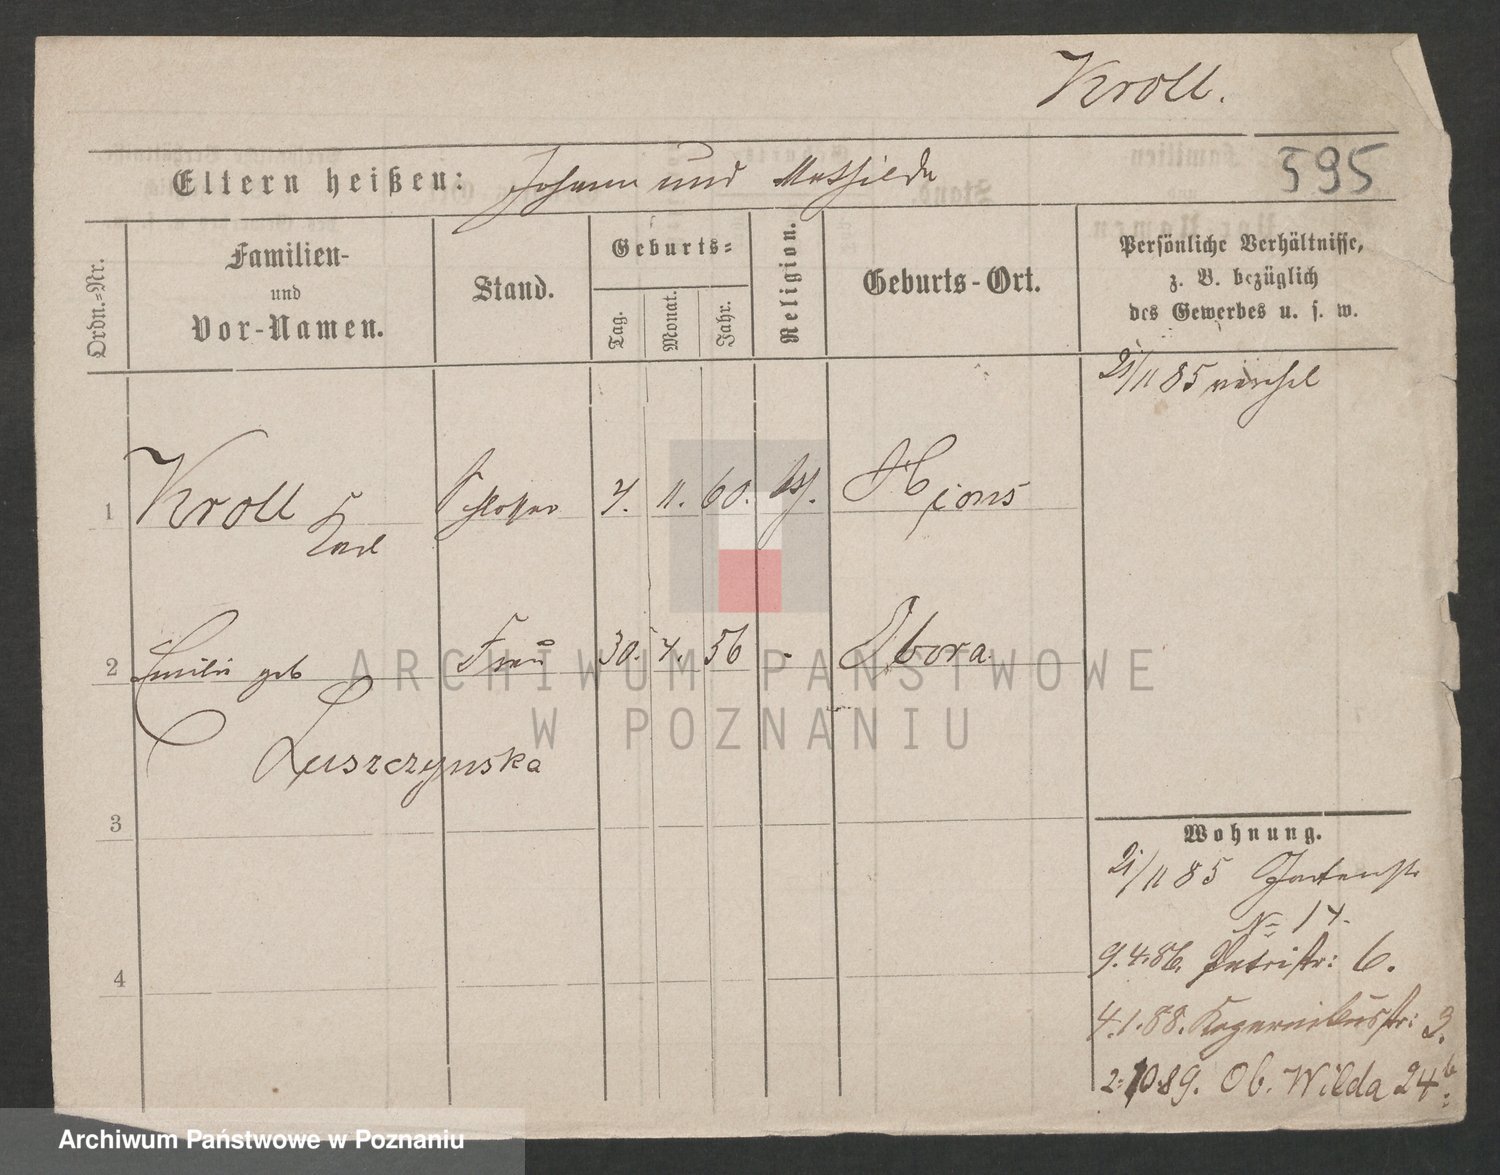 Kroll.
595
Eltern heißen: Johann und Mathilde
Ordn.=Nr.
Familien-
und
Vor-Namen.
Stand.
Geburts=
Tag.
Monat.
Jahr.
Religion.
Geburts-Ort.
Persönliche Verhältnisse,
z. B. bezüglich
des Gewerbes u. s. w.
21/11 85
1 Kroll Karl Schlosser 4. 11. 60. Xions
2 Emilie geb Frau 30. 4. 56 - Obora.
Luszczynska
3
4
Wohnung.
21/11 85 Gartenstr
No 14.
9.4.86. Petristr: 6.
4.1.88. Kopernikusstr: 3.
2.10.89. Ob. Wilda 24b.
ARCHIWUM PAŃSTWOWE
W POZNANIU
Archiwum Państwowe w Poznaniu